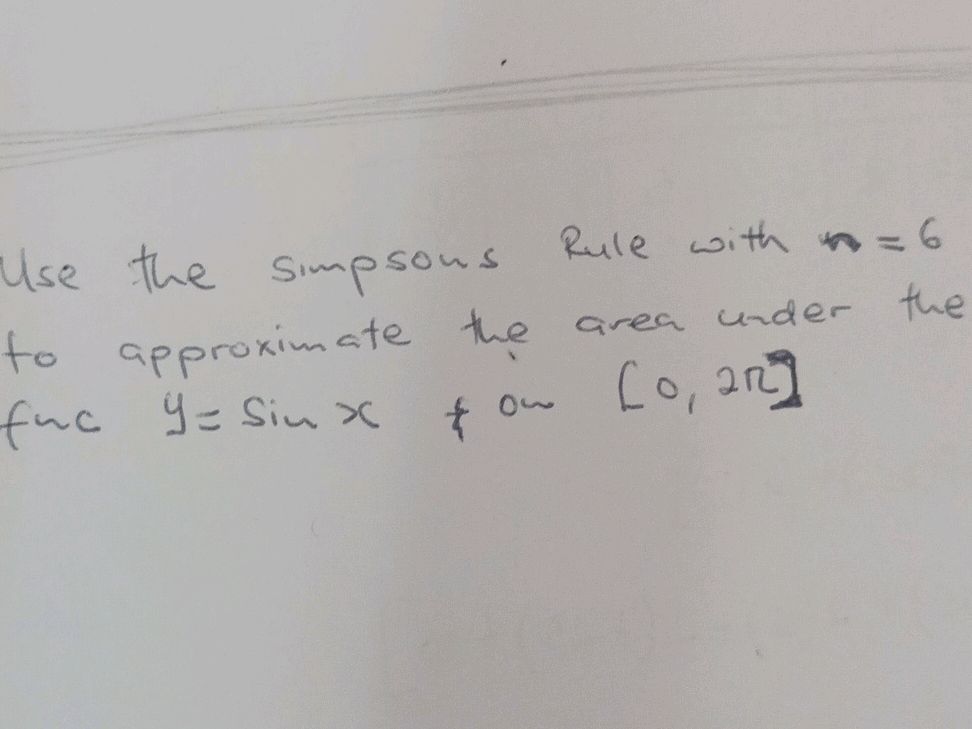 Use the simpsons Rule with n = 6
to approximate the area under the
func y = Sin x on [0, 2π]